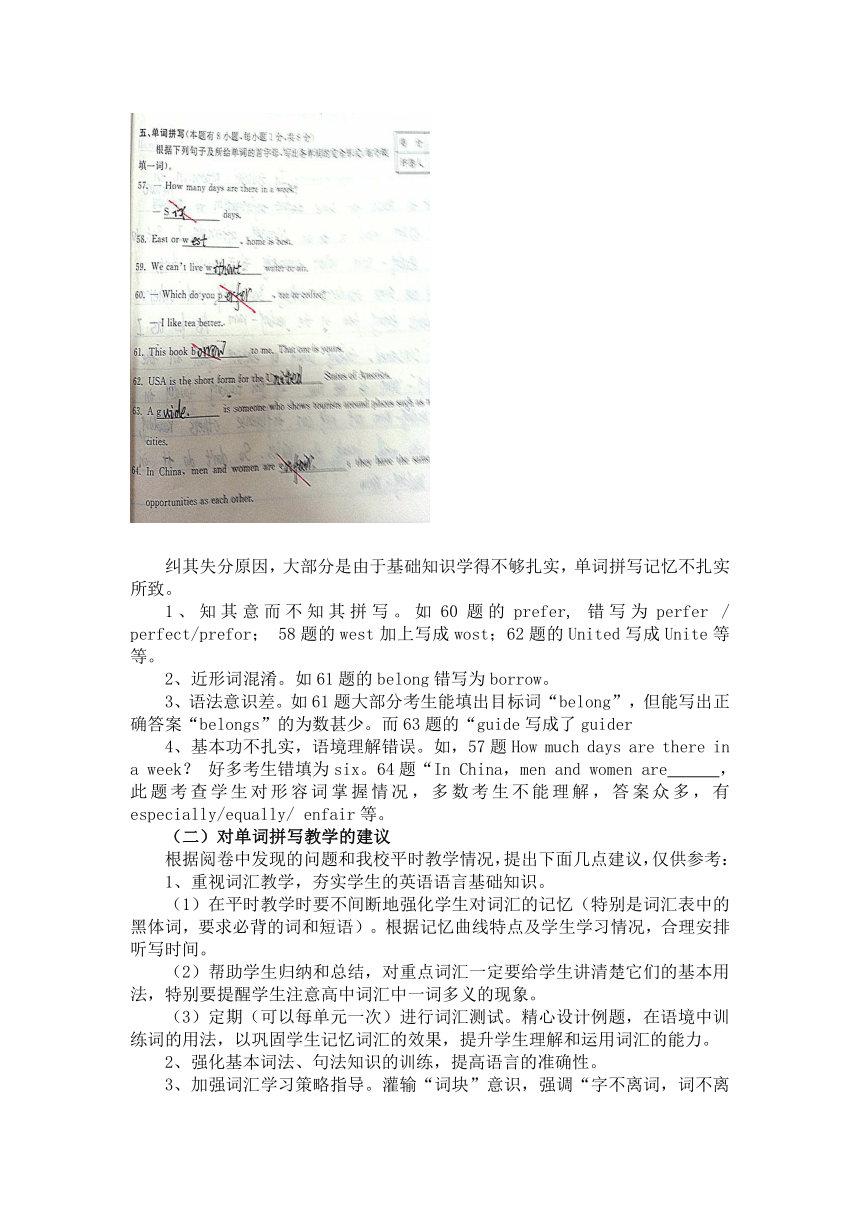 五、单词拼写(本题有8小题,每小题1分,共8分)
根据下列句子及所给单词的首字母,写出各单词的完全形式(每空限
填一词)。
57. — How many days are there in a week?
— Six days.
58. East or west, home is best.
59. We can't live without water or air.
60. — Which do you perfer, tea or coffee?
— I like tea better.
61. This book borrow to me. That one is yours.
62. USA is the short form for the United States of America.
63. A guide. is someone who shows tourists around places such as
cities.
64. In China, men and women are ; they have the same
opportunities as each other.
纠其失分原因,大部分是由于基础知识学得不够扎实,单词拼写记忆不扎实
所致。
1、知其意而不知其拼写。如 60 题的 prefer, 错写为 perfer /
perfect/prefor; 58 题的 west 加上写成 wost;62 题的 United 写成 Unite 等
等。
2、近形词混淆。如 61 题的 belong 错写为 borrow。
3、语法意识差。如 61 题大部分考生能填出目标词“belong”,但能写出正
确答案“belongs”的为数甚少。而 63 题的“guide 写成了 guider
4、基本功不扎实,语境理解错误。如,57 题 How much days are there in
a week? 好多考生错填为 six。64 题“In China,men and women are______,
此题考查学生对形容词掌握情况,多数考生不能理解,答案众多,有
especially/equally/ enfair 等。
(二)对单词拼写教学的建议
根据阅卷中发现的问题和我校平时教学情况,提出下面几点建议,仅供参考:
1、重视词汇教学,夯实学生的英语语言基础知识。
(1)在平时教学时要不间断地强化学生对词汇的记忆(特别是词汇表中的
黑体词,要求必背的词和短语)。根据记忆曲线特点及学生学习情况,合理安排
听写时间。
(2)帮助学生归纳和总结,对重点词汇一定要给学生讲清楚它们的基本用
法,特别要提醒学生注意高中词汇中一词多义的现象。
(3)定期(可以每单元一次)进行词汇测试。精心设计例题,在语境中训
练词的用法,以巩固学生记忆词汇的效果,提升学生理解和运用词汇的能力。
2、强化基本词法、句法知识的训练,提高语言的准确性。
3、加强词汇学习策略指导。灌输“词块”意识,强调“字不离词,词不离